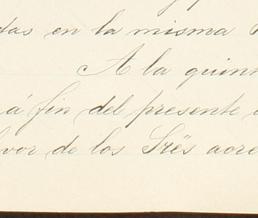 das en la misma
A la quinn
á fin del presente
vor de los Srēs acre